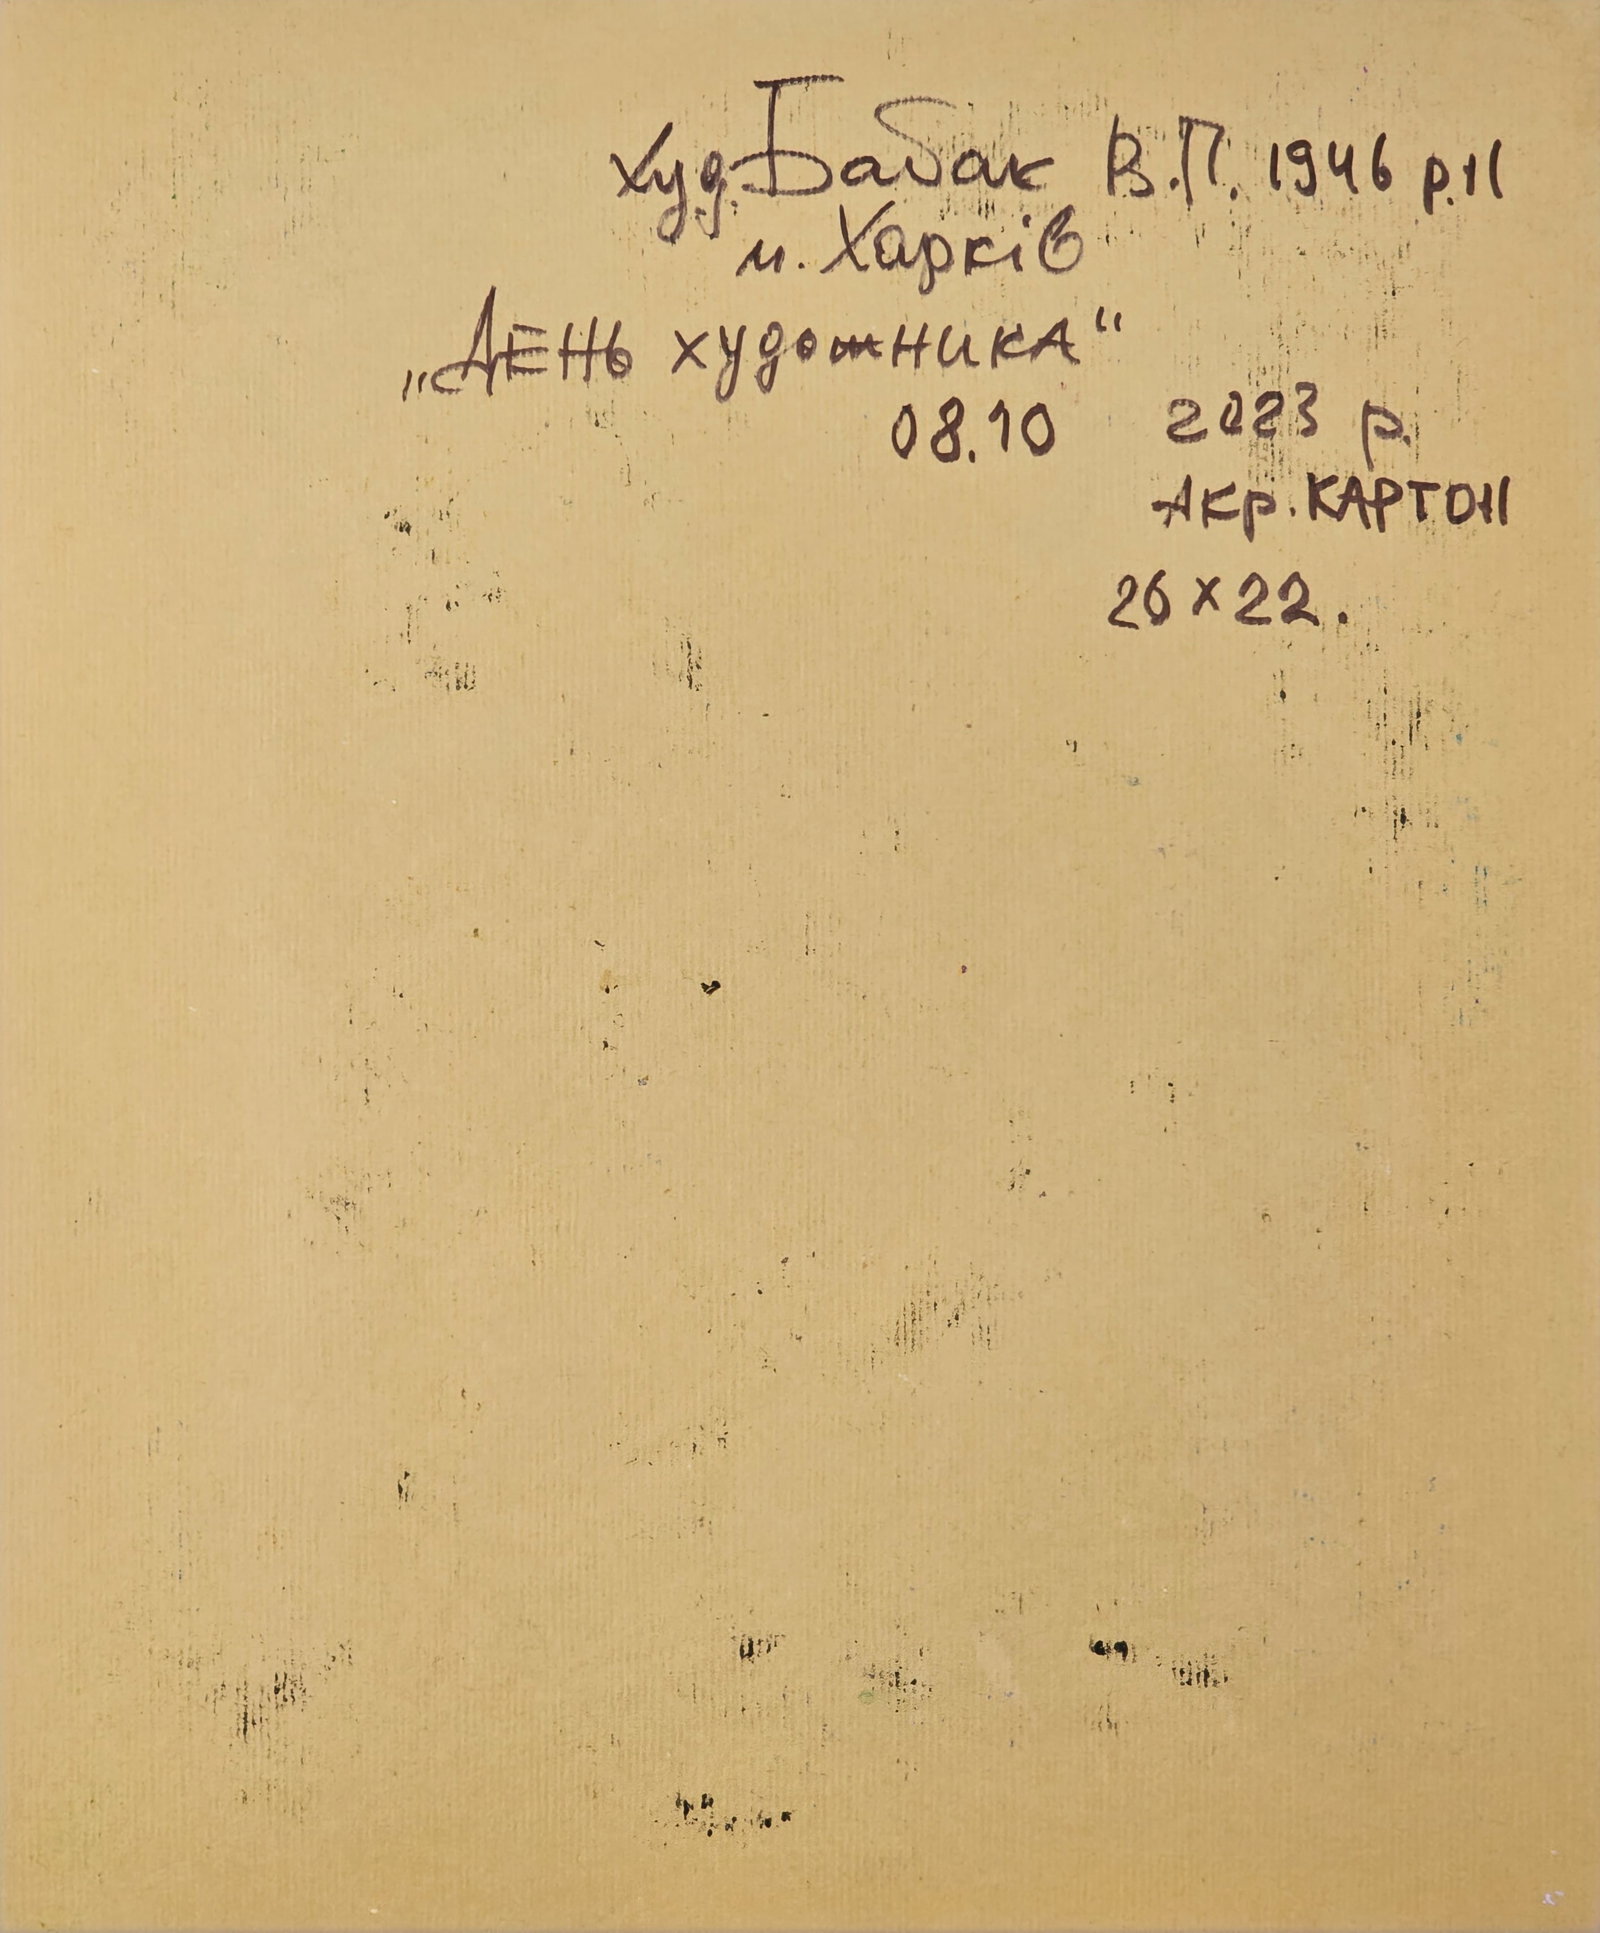 худ. Бабак В.П. 1946 р.н
м. Харків
„ДЕНЬ художника“
08.10 2023 р.
Акр. КАРТОН
26 х 22.